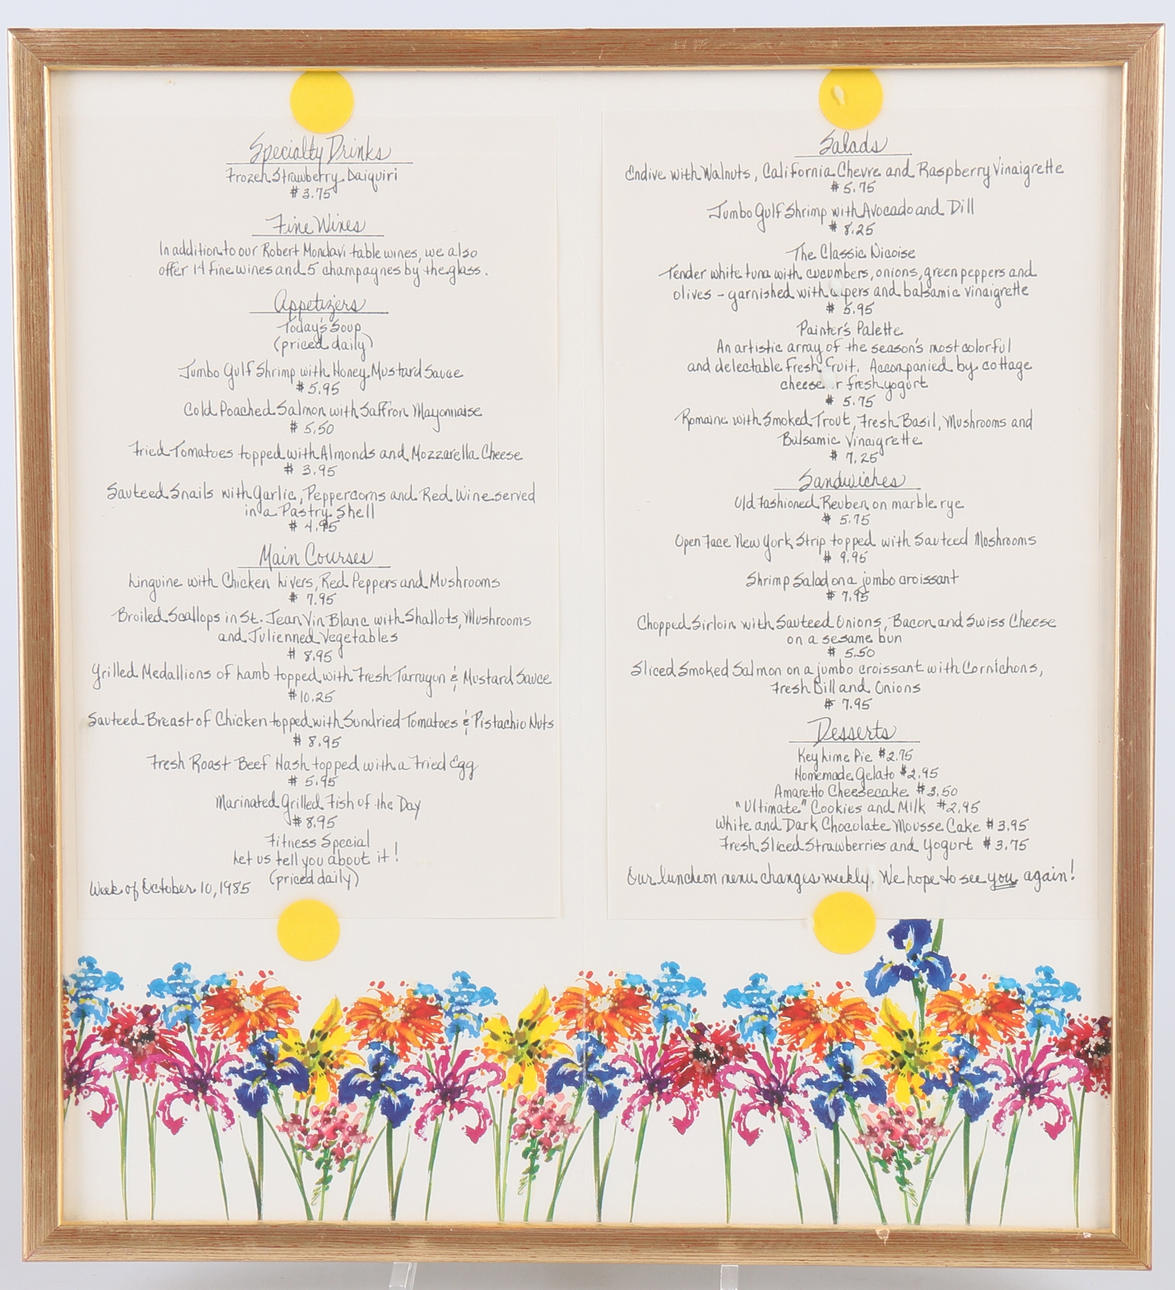 Specialty Drinks
Frozen Strawberry Daiquiri
$3.75
Fine Wines
In addition to our Robert Mondavi table wines, we also
offer 14 fine wines and 5 champagnes by the glass.
Appetizers
Today's Soup
(priced daily)
Jumbo Gulf Shrimp with Honey Mustard Sauce
$5.95
Cold Poached Salmon with Saffron Mayonnaise
$5.50
Fried Tomatoes topped with Almonds and Mozzarella Cheese
$3.95
Sauteed Snails with Garlic, Peppercorns and Red Wine served
in a Pastry Shell
$4.95
Main Courses
Linguine with Chicken Livers, Red Peppers and Mushrooms
$7.95
Broiled Scallops in St. Jean Vin Blanc with Shallots, Mushrooms
and Julienned Vegetables
$8.95
Grilled Medallions of Lamb topped with Fresh Tarragon & Mustard Sauce
$10.25
Sauteed Breast of Chicken topped with Sundried Tomatoes & Pistachio Nuts
$8.95
Fresh Roast Beef Hash topped with a Fried Egg
$5.95
Marinated Grilled Fish of the Day
$8.95
Fitness Special
Let us tell you about it!
(priced daily)
Week of October 10, 1985
Salads
Endive with Walnuts, California Chevre and Raspberry Vinaigrette
$5.75
Jumbo Gulf Shrimp with Avocado and Dill
$8.25
The Classic Nicoise
Tender white tuna with cucumbers, onions, green peppers and
olives - garnished with capers and balsamic vinaigrette
$5.95
Painter's Palette
An artistic array of the season's most colorful
and delectable fresh fruit. Accompanied by cottage
cheese or fresh yogurt
$5.75
Romaine with Smoked Trout, Fresh Basil, Mushrooms and
Balsamic Vinaigrette
$7.25
Sandwiches
Old Fashioned Reuben on marble rye
$5.75
Open Face New York Strip topped with Sauteed Moshrooms
$9.95
Shrimp Salad on a jumbo croissant
$7.95
Chopped Sirloin with Sauteed Onions, Bacon and Swiss Cheese
on a sesame bun
$5.50
Sliced Smoked Salmon on a jumbo croissant with Cornichons,
Fresh Dill and Onions
$7.95
Desserts
Key Lime Pie $2.75
Homemade Gelato $2.95
Amaretto Cheesecake $3.50
"Ultimate" Cookies and Milk $2.95
White and Dark Chocolate Mousse Cake $3.95
Fresh Sliced Strawberries and Yogurt $3.75
Our luncheon menu changes weekly. We hope to see you again!